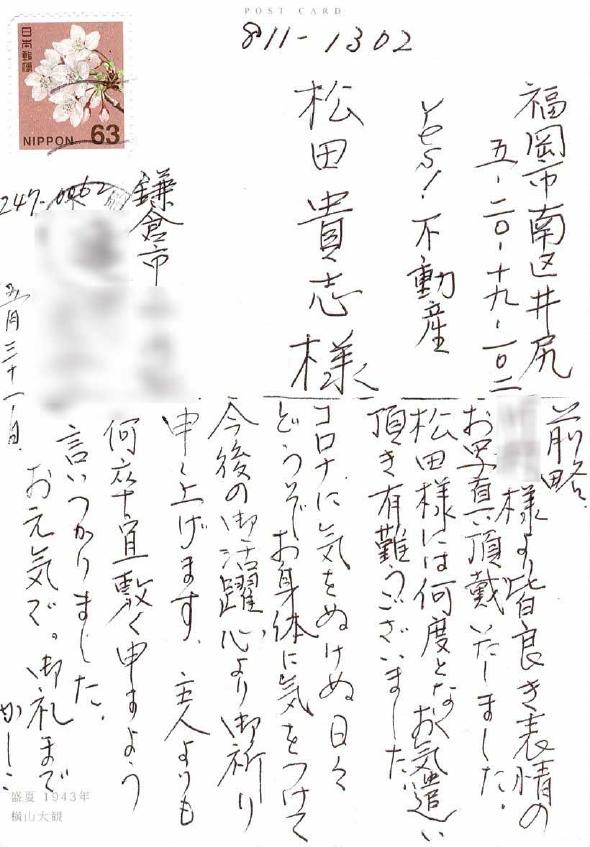 POST CARD
811-1302
福岡市南区井尻
五-二〇-十九-一〇二
yes!不動産
松田貴志様
日本郵便
NIPPON 63
鎌倉市
247-0062
五月三十一日
前略
様より皆良き表情の
お写真頂戴いたしました。
松田様には何度となくお気遣い
頂き有難うございました。
コロナに気をぬけぬ日々
どうぞお身体に気をつけて
今後の御活躍心より御祈り
申し上げます。主人よりも
何卒宜敷く申すよう
言いつかりました。
お元気で。御礼まで
かしこ
盛夏 1943年
横山大観